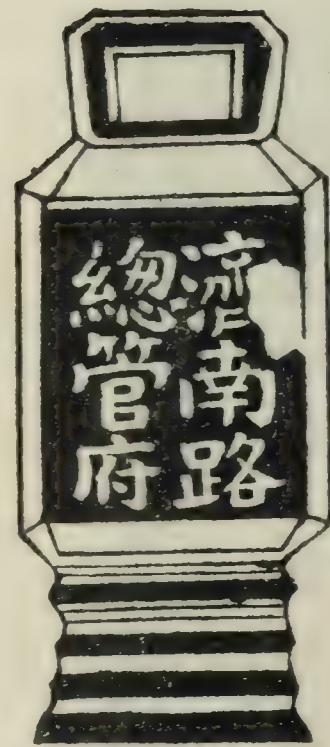 濟南路
總管府